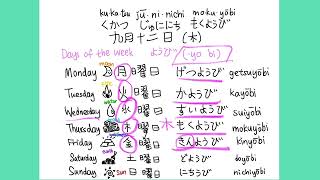 ku·ka·tsu jū·ni·nichi moku·yōbi
くかつ じゅににち もくようび
九月十二日 (木)
Days of the week ようび (-yo bi)
Monday moon 月曜日 げつようび getsuyōbi
Tuesday 火曜日 かようび kayōbi
Wednesday water 水曜日 すいようび suiyōbi
Thursday 木曜日 木 もくようび mokuyōbi
Friday 金曜日 きんようび kinyōbi
Saturday 土曜日 どようび doyōbi
Sunday Sun 日曜日 にちようび nichiyōbi